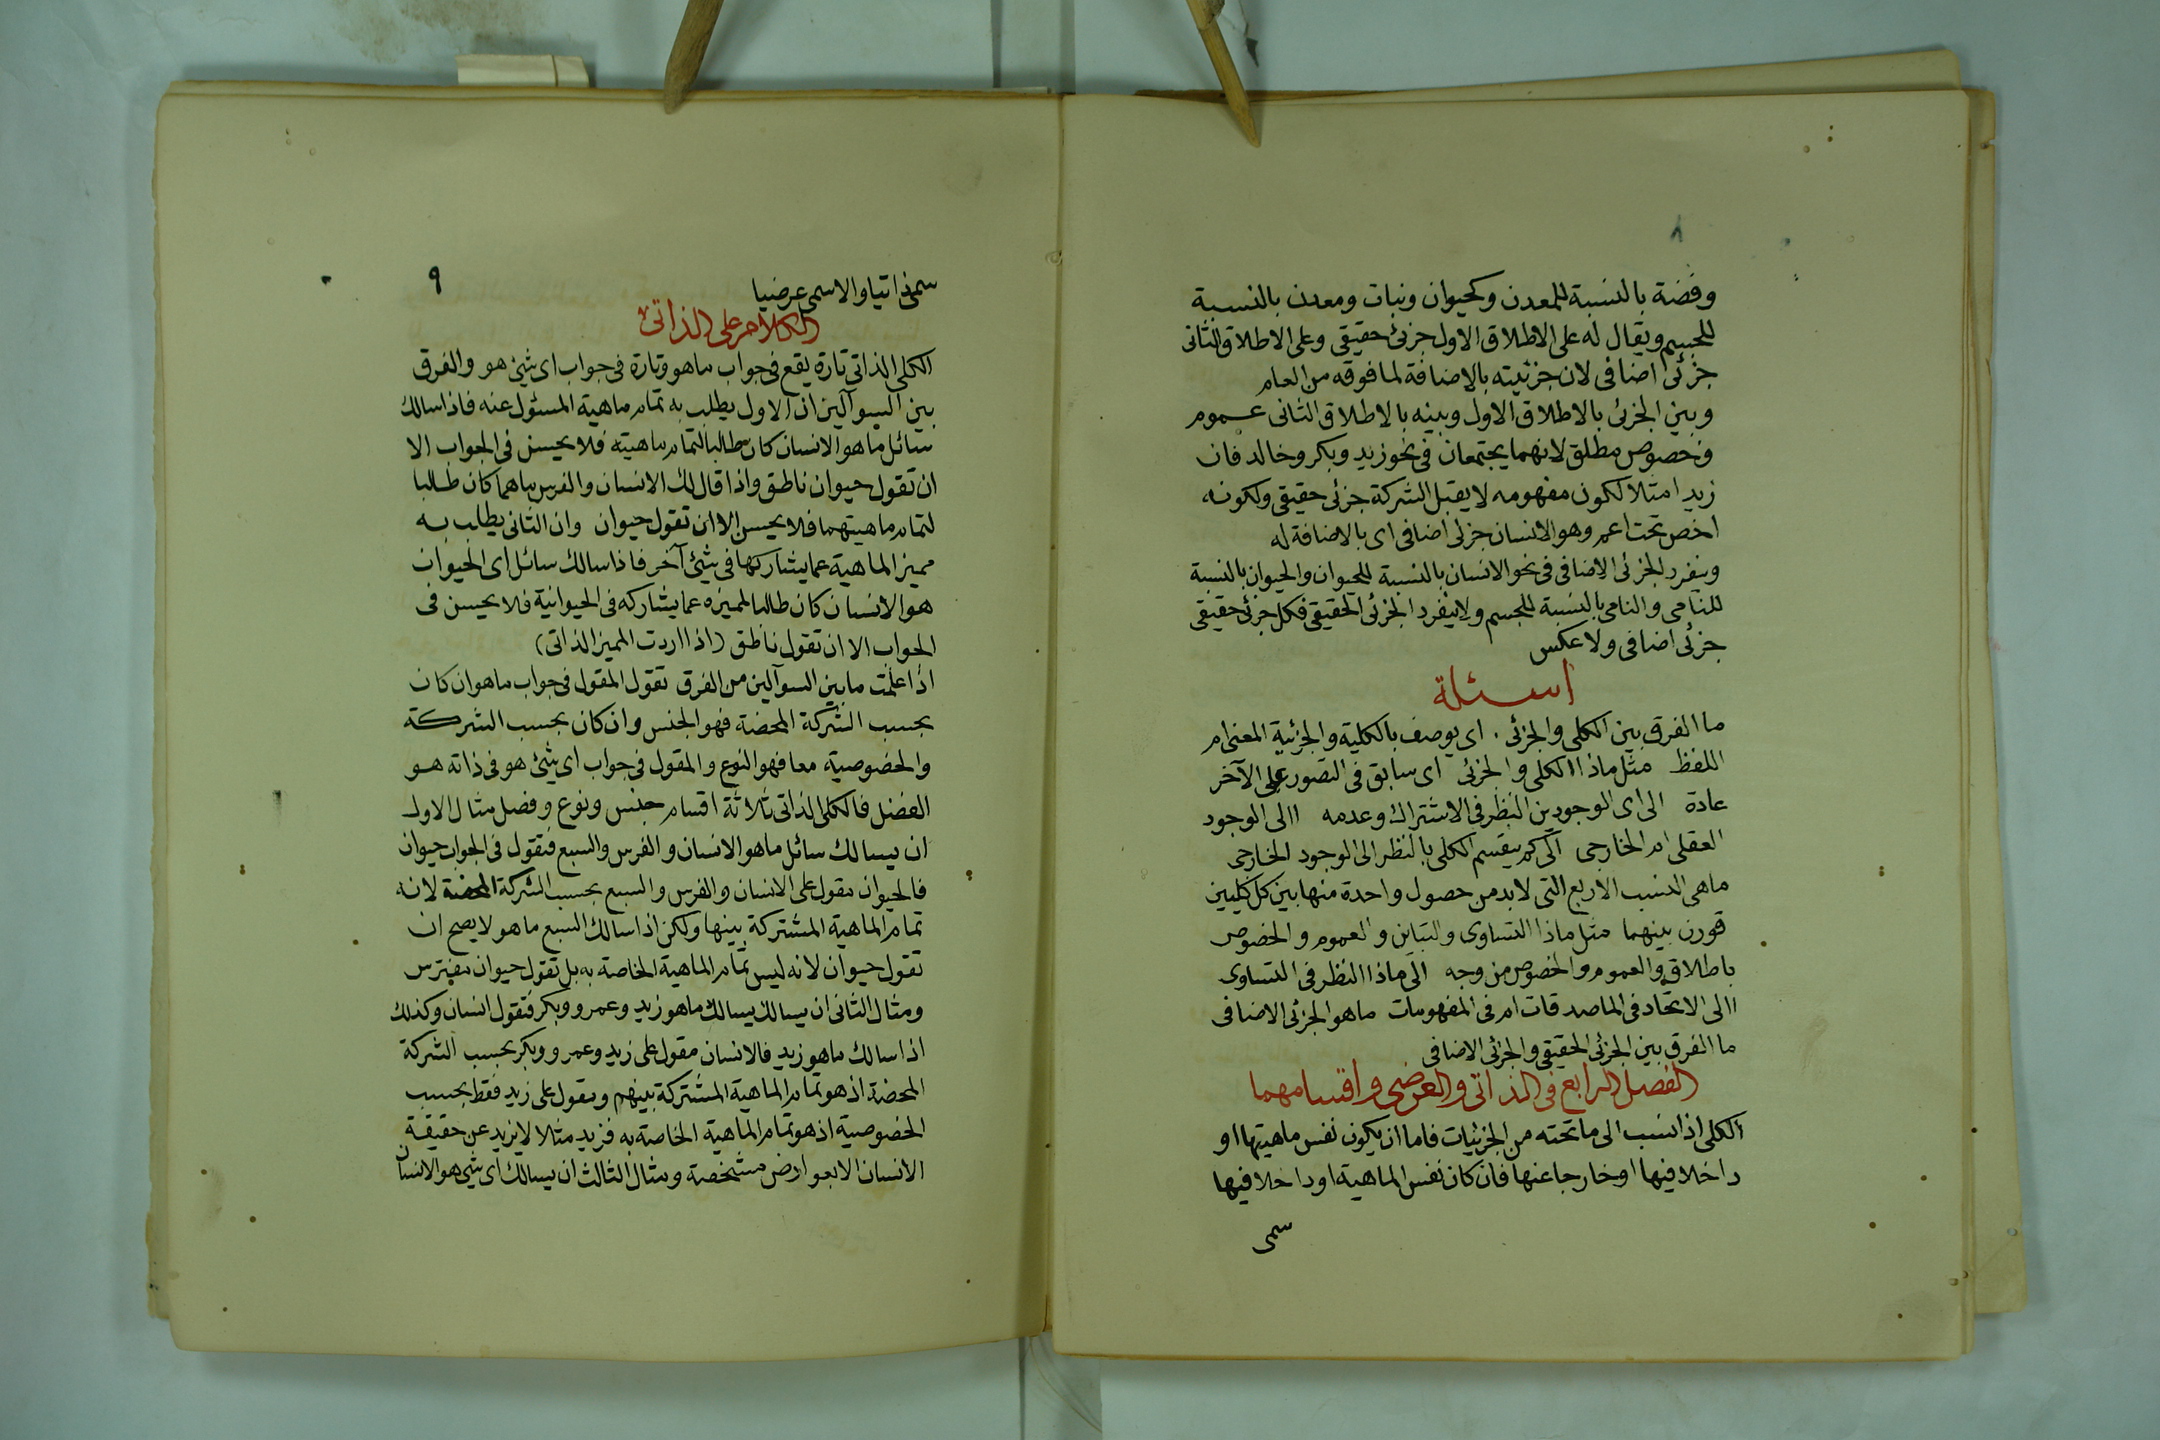 ٨
وفضة بالنسبة للمعدن وكحيوان ونبات ومعدن بالنسبة
للجسم ويقال له على الاطلاق الاول جزئى حقيقى وعلى الاطلاق الثانى
جزئى اضافى لان جزئيته بالاضافة لما فوقه من العام
وبين الجزئى بالاطلاق الاول وبينه بالاطلاق الثانى عموم
وخصوص مطلق لانهما يجتمعان فى نحو زيد وبكر وخالد فان
زيدا مثلا لكون مفهومه لا يقبل الشركة جزئى حقيقى ولكونه
اخص تحت اعم وهو الانسان جزئى اضافى اى بالاضافة له
وينفرد الجزئى الاضافى فى نحو الانسان بالنسبة للحيوان والحيوان بالنسبة
للنامى والنامى بالنسبة للجسم ولا ينفرد الجزئى الحقيقى فكل جزئى حقيقى
جزئى اضافى ولا عكس
اسئلة
ما الفرق بين الكلى والجزئى . اى يوصف بالكلية والجزئية المعنى ام
اللفظ مثل ماذا الكلى والجزئى اى سابق فى التصور على الآخر
عادة الى اى الوجودين النظر فى الاشتراك وعدمه االى الوجود
العقلى ام الخارجى الى كم ينقسم الكلى بالنظر الى الوجود الخارجى
ماهى النسب الاربع التى لابد من حصول واحدة منها بين كل كليين
قورن بينهما مثل ماذا التساوى والتباين والعموم والخصوص
باطلاق والعموم والخصوص من وجه الى ماذا النظر فى التساوى
االى الاتحاد فى الماصدقات ام فى المفهومات ماهو الجزئى الاضافى
ما الفرق بين الجزئى الحقيقى والجزئى الاضافى
الفصل الرابع فى الذاتى والعرضى واقسامهما
الكلى اذا نسب الى ما تحته من الجزئيات فاما ان يكون نفس ماهيتها او
داخلا فيها او خارجا عنها فان كان نفس الماهية او داخلا فيها
سمى
٩
سمى ذاتيا والا سمى عرضيا
الكلام على الذاتى
الكلى الذاتى تارة يقع فى جواب ماهو وتارة فى جواب اى شئ هو والفرق
بين السوآلين ان الاول يطلب به تمام ماهية المسئول عنه فاذا سالك
سائل ما هو الانسان كان طالبا لتمام ماهيته فلا يحسن فى الجواب الا
ان تقول حيوان ناطق واذا قال لك الانسان والفرس ماهما كان طالبا
لتمام ماهيتهما فلا يحسن الا ان تقول حيوان وان الثانى يطلب به
مميز الماهية عما يشاركها فى شئ آخر فاذا سالك سائل اى الحيوان
هو الانسان كان طالبا لمميزه عما يشاركه فى الحيوانية فلا يحسن فى
الجواب الا ان تقول ناطق (اذا اردت المميز الذاتى)
اذا علمت مابين السوآلين من الفرق تقول المقول فى جواب ماهو ان كان
بحسب الشركة المحضة فهو الجنس وان كان بحسب الشركة
والخصوصية معا فهو النوع والمقول فى جواب اى شئ هو فى ذاته هو
الفصل فالكلى الذاتى ثلاثة اقسام جنس ونوع وفصل مثال الاول
ان يسالك سائل ماهو الانسان والفرس والسبع فتقول فى الجواب حيوان
فالحيوان مقول على الانسان والفرس والسبع بحسب الشركة المحضة لانه
تمام الماهية المشتركة بينها ولكن اذا سالك السبع ماهو لا يصح ان
تقول حيوان لانه ليس تمام الماهية الخاصة به بل تقول حيوان مفترس
ومثال الثانى ان يسالك يسالك ماهو زيد وعمرو وبكر فتقول انسان وكذلك
اذا سالك ماهو زيد فالانسان مقول على زيد وعمرو وبكر بحسب الشركة
المحضة اذ هو تمام الماهية المشتركة بينهم ومقول على زيد فقط بحسب
الخصوصية اذ هو تمام الماهية الخاصة به فزيد مثلا لا يزيد عن حقيقة
الانسان الا بعوارض مشخصة ومثال الثالث ان يسالك اى شئ هو الانسان